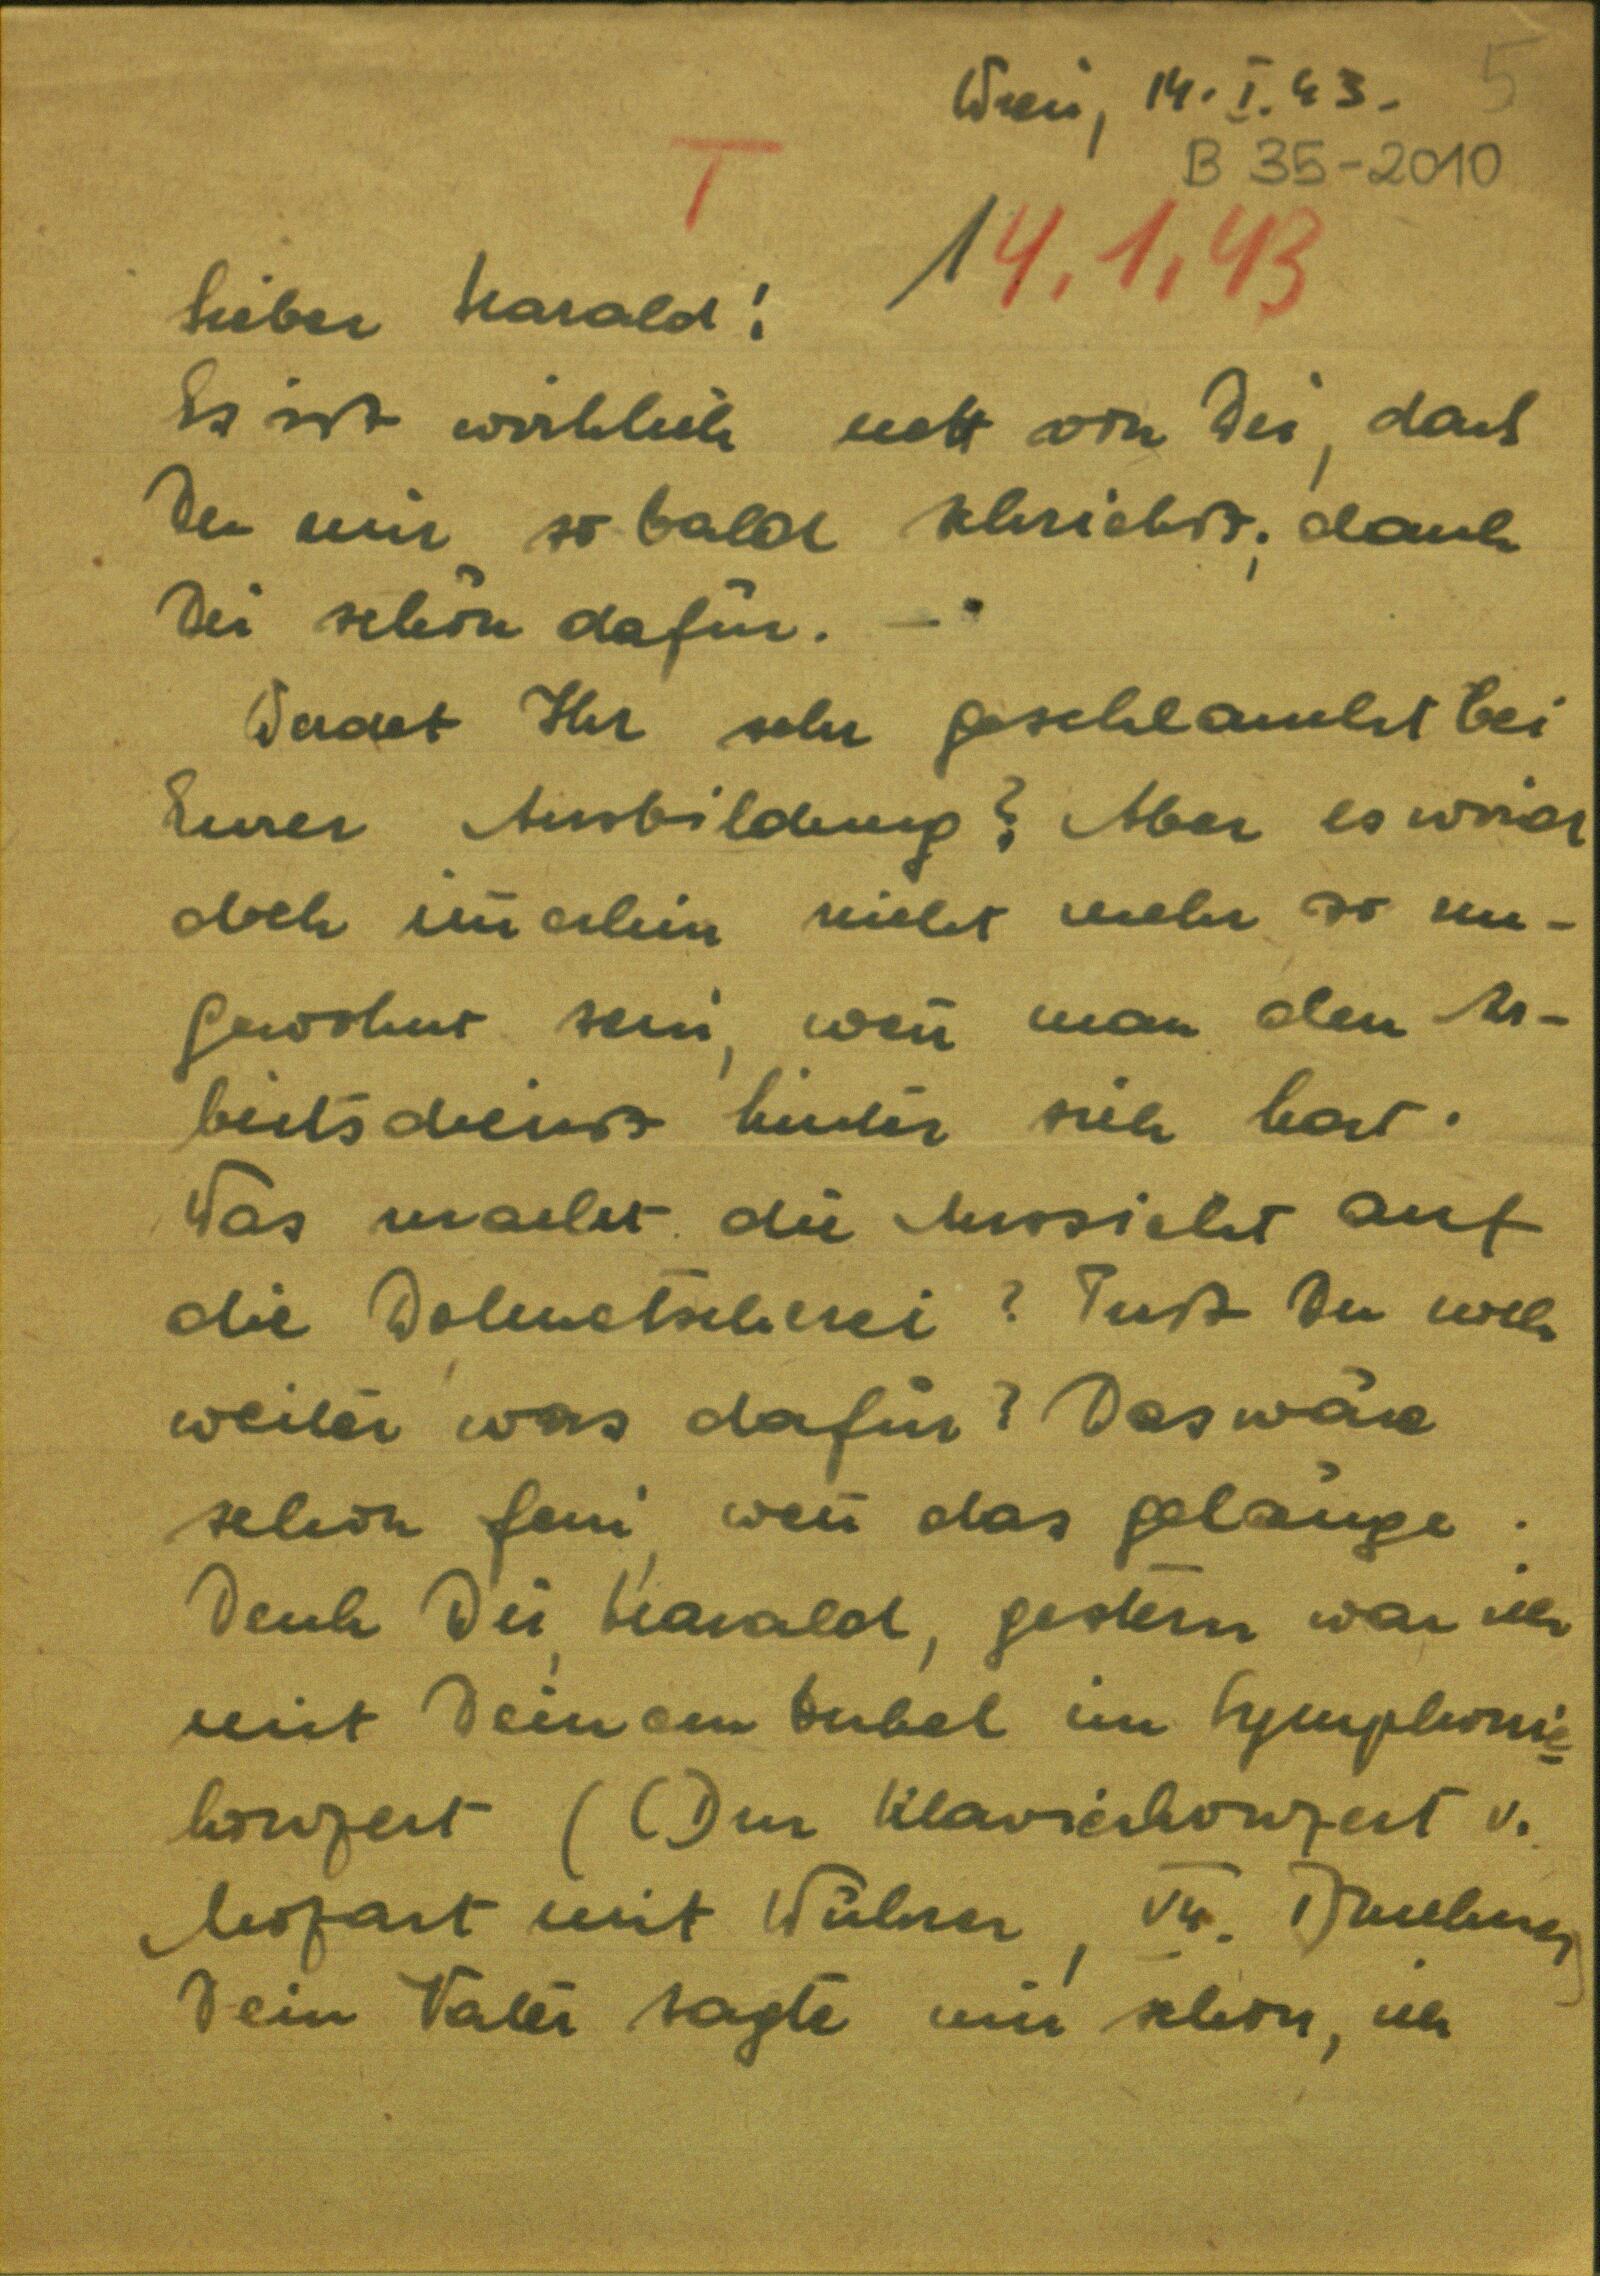 5
Wien, 14. I. 43.
B 35-2010
T
14.1.43
Lieber Harald!
Es ist wirklich nett von Dir, daß
Du mir so bald schriebst; dank
Dir schön dafür. –
Werdet Ihr sehr geschlaucht bei
Eurer Ausbildung? Aber es wird
doch im̄erhin nicht mehr so un-
gewohnt sein, wen̄ man den Ar-
beitsdienst hinter sich hat.
Was macht die Aussicht auf
die Dolmetscherei? Tust Du noch
weiter was dafür? Das wäre
schon fein, wen̄ das gelänge.
Denk Dir, Harald, gestern war ich
mit Deinem im Symphonie=
konzert ( Klavierkonzert v.
Mozart mit Wührer, VII. Bruckner)
Dein Vater sagte mir schon, ich